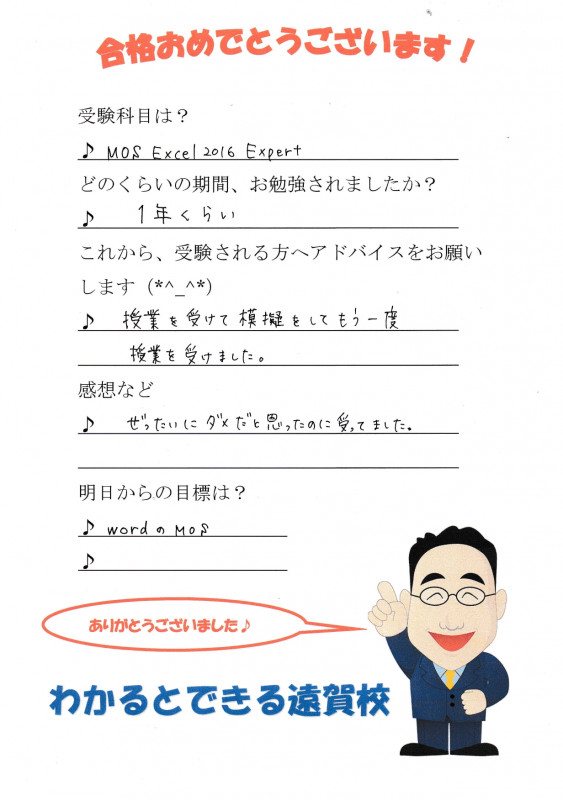 合格おめでとうございます!
受験科目は?
♪ MOS Excel 2016 Expert
どのくらいの期間、お勉強されましたか?
♪ 1年くらい
これから、受験される方へアドバイスをお願い
します (*^_^*)
♪ 授業を受けて模擬をしてもう一度
授業を受けました。
感想など
♪ ぜったいにダメだと思ったのに受ってました。
明日からの目標は?
♪ wordのMOS
♪
ありがとうございました♪
わかるとできる遠賀校